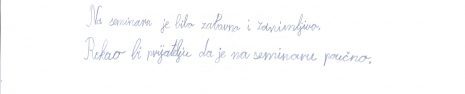 Na seminaru je bilo zabavno i zanimljivo.
Rekao bi prijatelju da je na seminaru poučno.